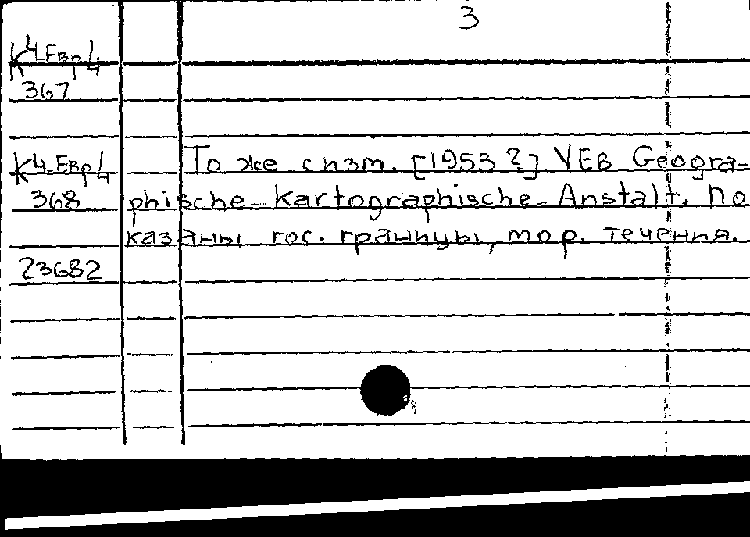 3
К4-Евр/4
367
К4-Евр/4 То же с изм. [1953?] VEB Geogra-
368 phische-Kartographische-Anstalt. По
казаны гос. границы, мор. течения.
23682